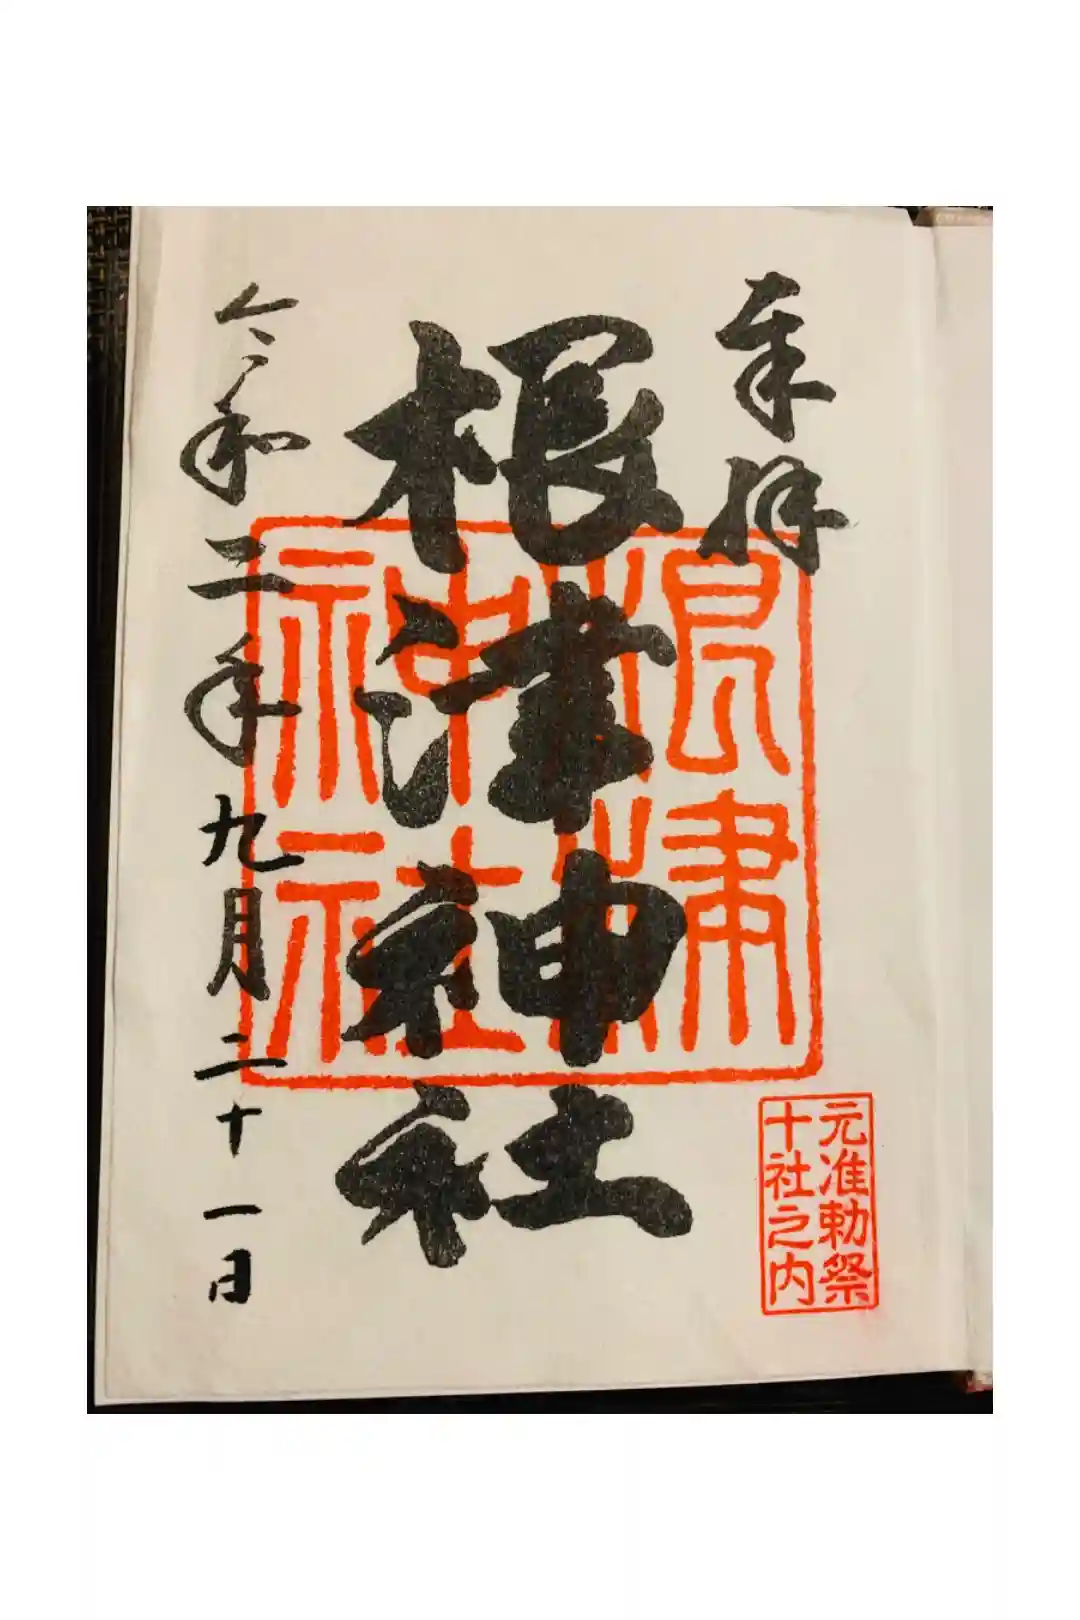 奉拝
根津神社
根津
神社
元准勅祭
十社之内
令和二年九月二十一日